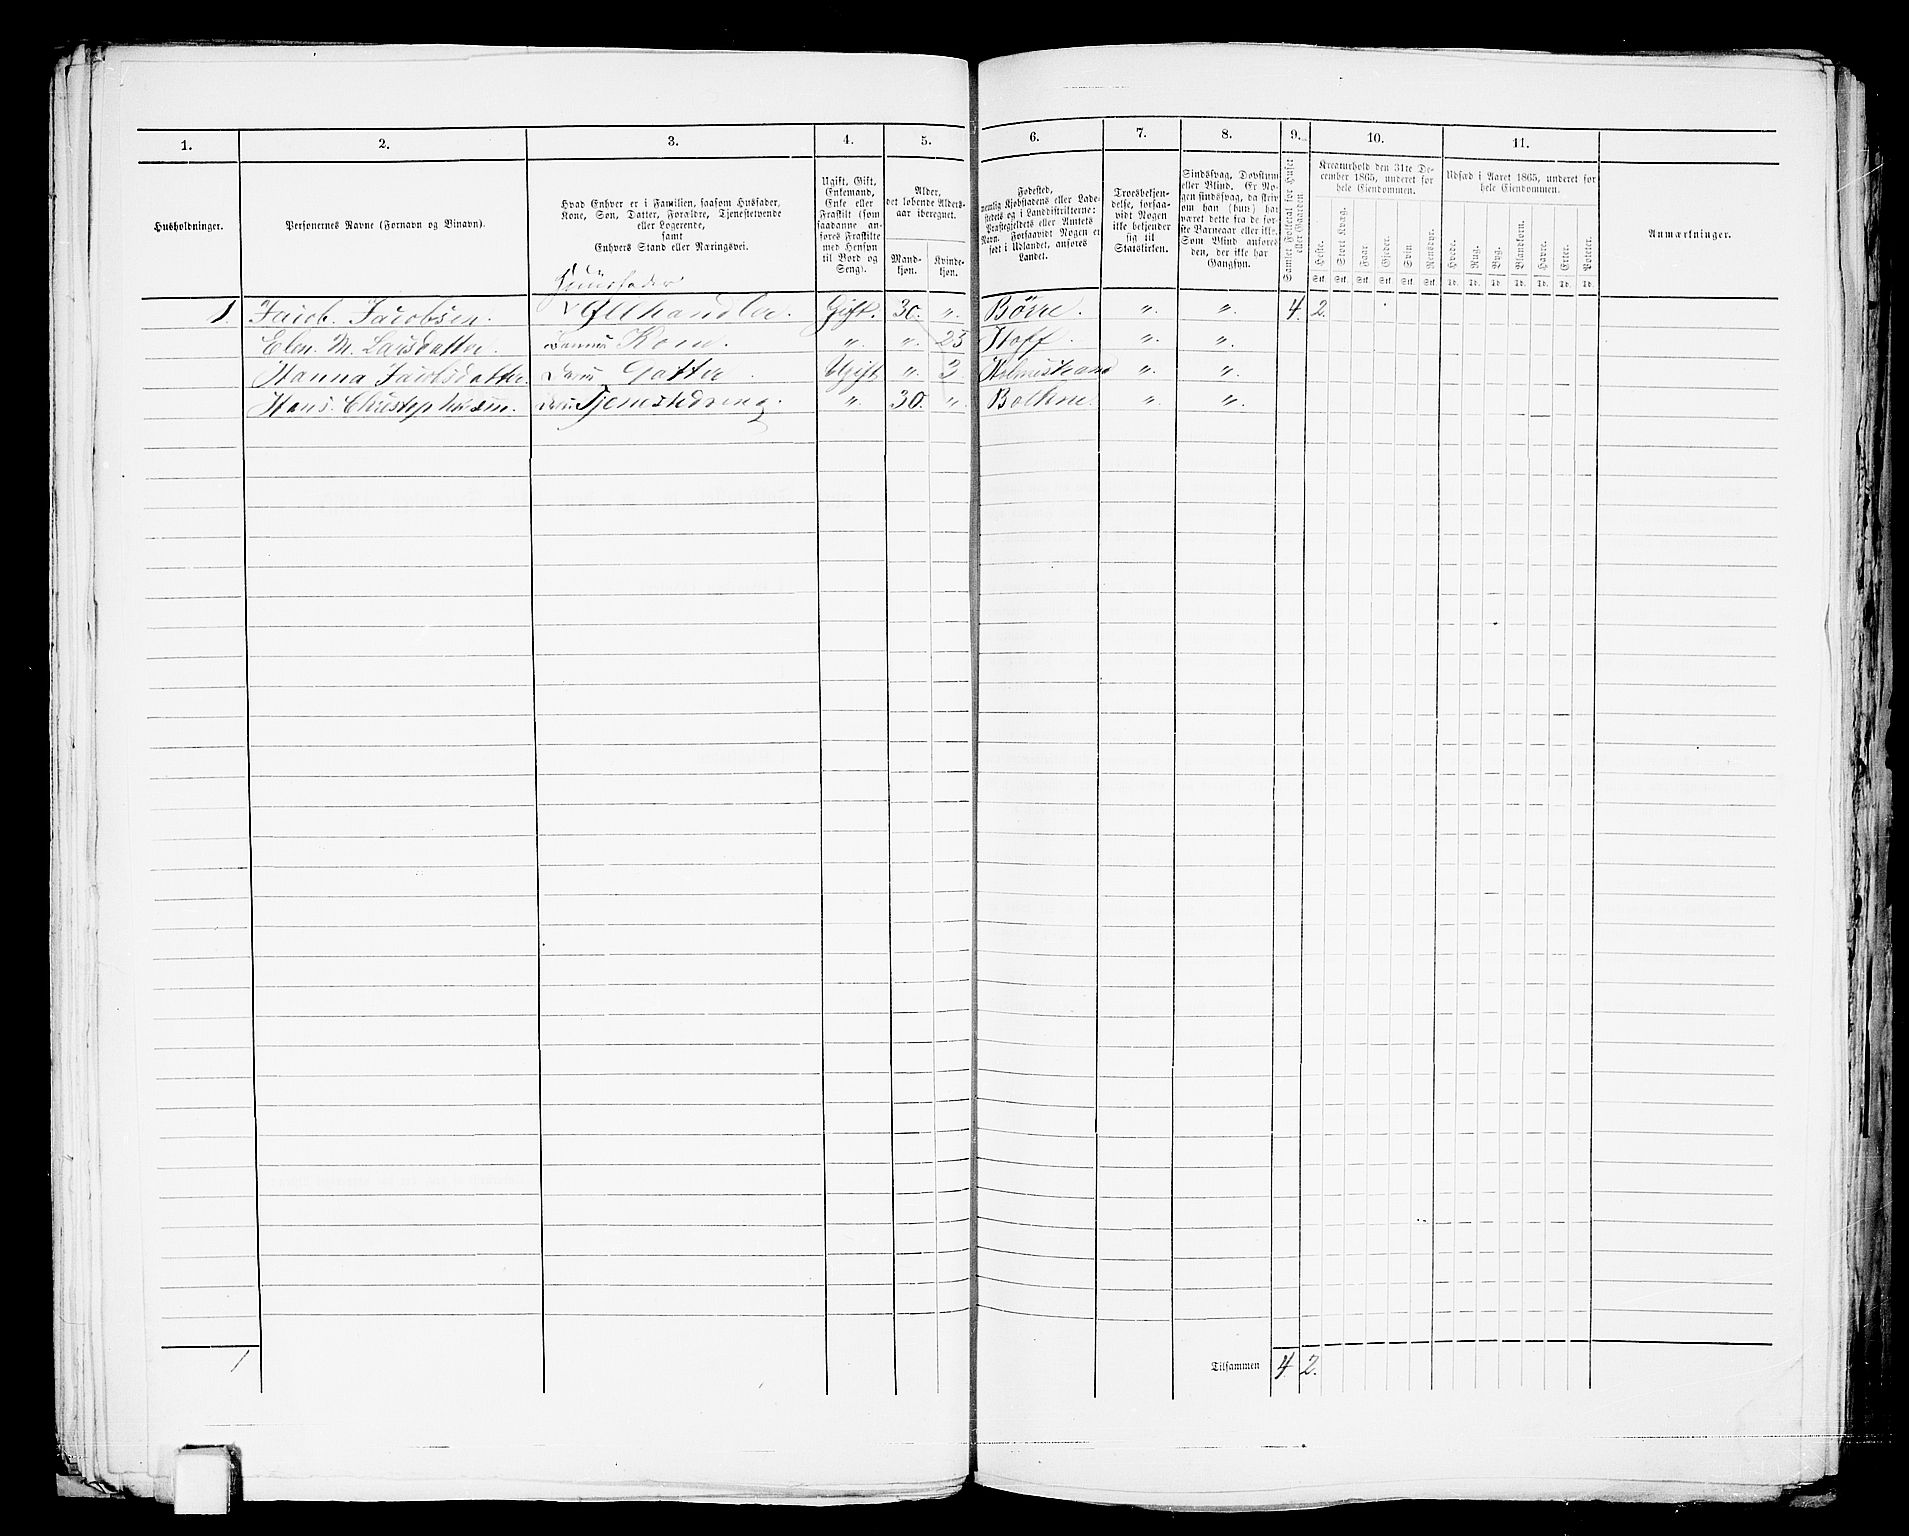 1. 2. 3. 4. 5. 6. 7. 8. 9. 10. 11.
Husholdninger.
Personernes Navne (Fornavn og Binavn).
Hvad Enhver er i Familien, saasom Husfader,
Kone, Søn, Datter, Forældre, Tjenestetyende
eller Logerende,
samt
Enhvers Stand eller Næringsvei.
Ugift, Gift,
Enkemand,
Enke eller
Fraskilt (som
saadanne an-
føres Fraskilte
med Hensyn
til Bord og
Seng).
Alder,
det løbende Alders-
aar iberegnet.
Mand-
kjøn.
Kvinde-
kjøn.
Fødested,
nemlig Kjøbstadens eller Lade-
stedets og i Landdistrikterne:
Præstegjeldets eller Amtets
Navn. Forsaavidt Nogen er
født i Udlandet, anføres
Landet.
Troesbekjen-
delse, forsaa-
vidt Nogen
ikke bekjender
sig til
Statskirken.
Sindssvag, Døvstum
eller Blind. Er No-
gen sindssvag, da skriv
om han (hun) har
været dette fra de før-
ste Barneaar eller ikke.
Som Blind anføres
den, der ikke har
Gangsyn.
Samlet Folketal for Huset
eller Gaarden
Kreaturhold den 31te De-
cember 1865, underet for
hele Eiendommen.
Heste. Stort Kvæg. Faar Gjeder. Svin Rensdyr.
Stk. Stk. Stk. Stk. Stk. Stk.
Udsæd i Aaret 1865, underet for
hele Eiendommen.
Hvede. Rug. Byg. Blandkorn. Havre. Erter. Poteter.
Td. Td. Td. Td. Td. Td. Td.
Anmærkninger.
Huusfader
1. Jacob Jacobsen. Ølhandler. Gift. 30. " Børre. " " 4. 2.
Elen. M. Larsdatter Kone. " " 25 Hoff. " "
Hanna Jacobsdatter. Datter Ugift " 3 Holmestrand " "
Hans. Christophersen. Tjenestedreng " 30. " Bothne. " "
1 Tilsammen 4 2.